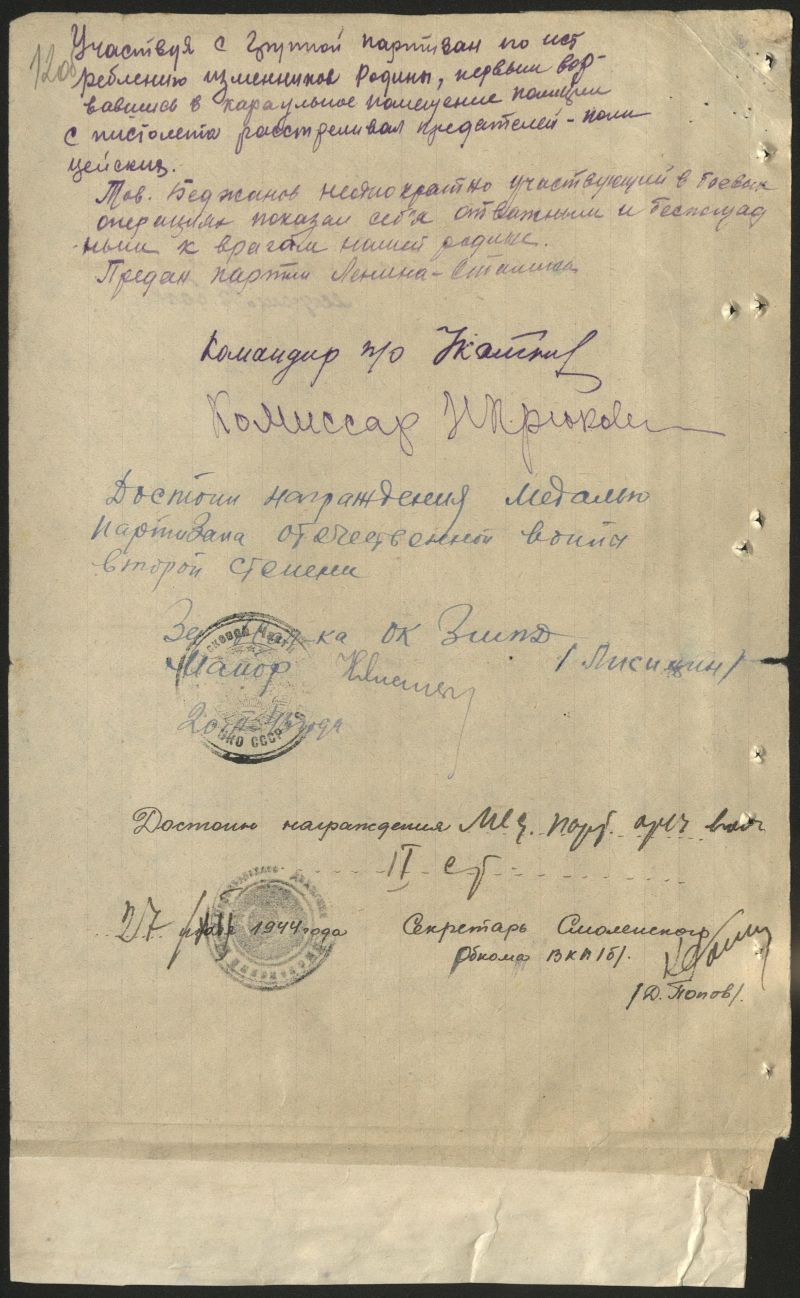 12об
Участвуя с группой партизан по ист
реблению изменников Родины, первым вор-
вавшись в караульное помещение полиции
с пистолета расстреливал предателей-поли
цейских.
Тов. Беджанов неоднократно участвующий в боевых
операциях показал себя отважным и беспощад
ным к врагам нашей родине.
Предан партии Ленина-Сталина
Командир п/о
Комиссар Крюков
Достоин награждения Медалью
Партизана отечественной войны
второй степени
ка ОК ЗШПД
Майор /Лисицин/
20 года
НКО СССР
Достоин награждения Мед. парт. отеч войн
II ст
27 мая 1944 года Секретарь Смоленского
Обкома ВКП(б).
/Д. Попов/.